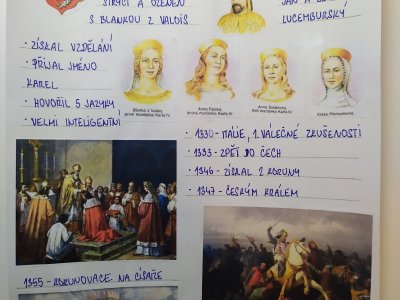 STRÝCI A OŽENĚN
S BLANKOU Z VALOIS
LUCEMBURSKÝ
· ZÍSKAL VZDĚLÁNÍ
· PŘIJAL JMÉNO
KAREL
· HOVOŘIL 5 JAZYKY
· VELMI INTELIGENTNÍ
Blanka z Valois,
první manželka Karla IV.
Anna Falcká,
druhá manželka Karla IV.
Anna Svídnická,
třetí manželka Karla IV.
Eliška Přemyslovna,
· 1330 - ITÁLIE, 1. VÁLEČNÉ ZKUŠENOSTI
· 1333 - ZPĚT DO ČECH
· 1346 - ZÍSKAL 2 KORUNY
· 1347 - ČESKÝM KRÁLEM
1355 - KORUNOVACE NA CÍSAŘE